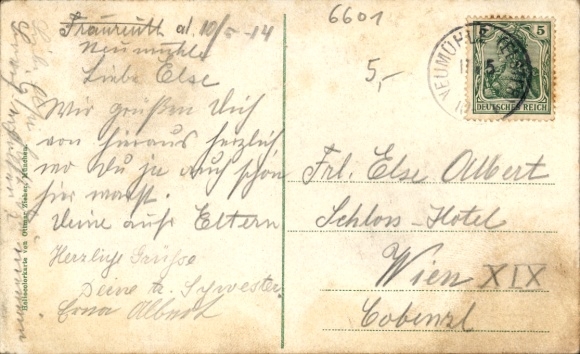 Fraureuth al. 10/5 - 14
Neumühle
Liebe Else
Wir grüßen Dich
von hieraus herzlich
wo Du ja auch schon
hier warst.
Deine Eltern
Herzliche Grüsse
Deine Schwester
Erna Albert
6601
5,-
NEUMÜHLE
5
DEUTSCHES REICH
Frl. Else Albert
Schloss-Hotel
Wien XIX
Cobenzl
Heliocolorkarte von Ottmar Zieher, München.